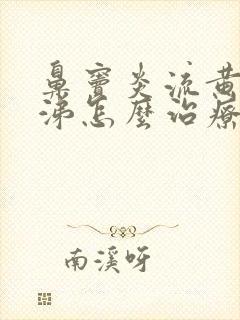 鼻窦炎流黄
涕怎麼治療
南溪呀